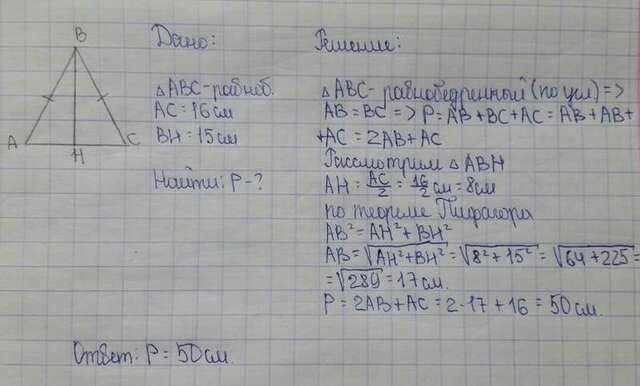 B
A
C
H
Дано:
△ABC-равноб.
AC=16см
BH=15см
Найти: P-?
Решение:
△ABC-равнобедренный (по усл) =>
AB=BC => P=AB+BC+AC=AB+AB+
+AC=2AB+AC
Рассмотрим △ABH
AH=AC/2=16/2см=8см
по теореме Пифагора
AB²=AH²+BH²
AB=√AH²+BH²=√8²+15²=√64+225=
=√289=17см.
P=2AB+AC=2·17+16=50см.
Ответ: P=50см.